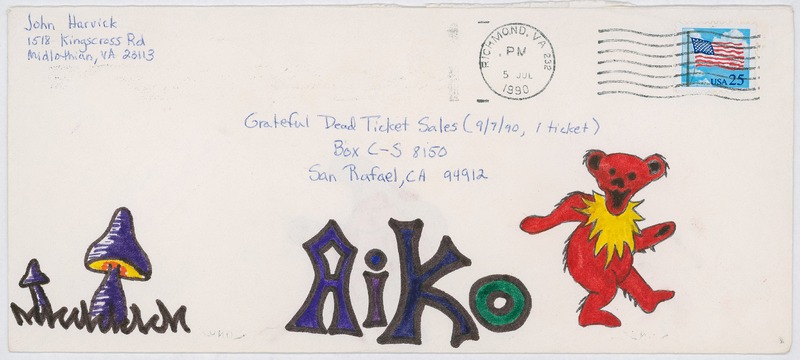 John Harvick
1518 Kingscross Rd
Midlothian, VA 23113
RICHMOND, VA 232
PM
5 JUL
1990
USA 25
Grateful Dead Ticket Sales (9/7/90, 1 ticket)
Box C-S 8150
San Rafael, CA 94912
Aiko